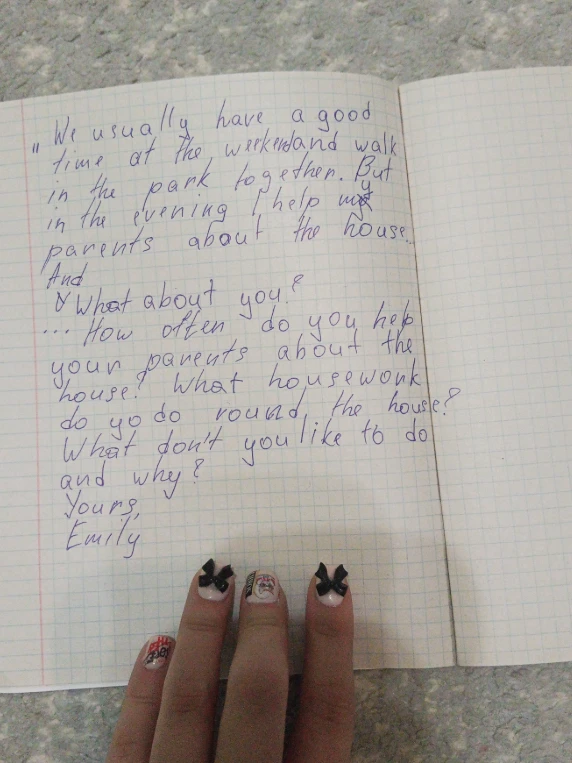 "We usually have a good
time at the weekend and walk
in the park together. But
in the evening I help my
parents about the house...
And
What about you?
... How often do you help
your parents about the
house? What housework
do yo do round the house?
What don't you like to do
and why?
Yours,
Emily